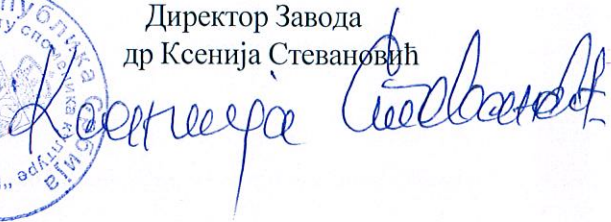 Директор Завода
др Ксенија Стевановић
Ксенија Стевановић